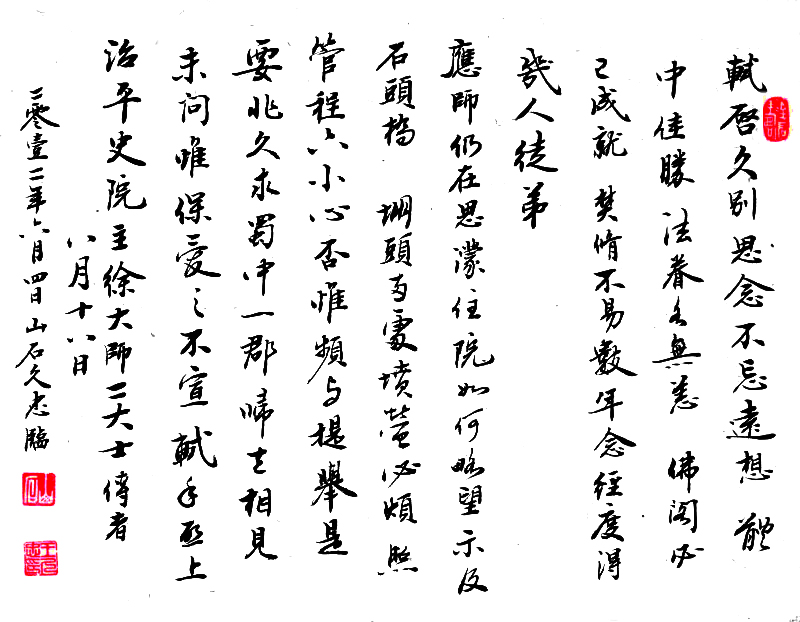 軾啓久別思念不忘遠想體
中佳勝法眷各無恙佛閣必
已成就焚脩不易數年念經度得
幾人徒弟
應師仍在思濛住院如何略望示及
石頭橋堋頭兩處墳塋必煩照
管程六小心否惟頻与提舉是
要非久求蜀中一郡歸去相見
未間惟保愛之不宣軾手啓上
治平史院主徐大師二大士侍者
八月十八日
二零壹二年六月四日山石久忠臨